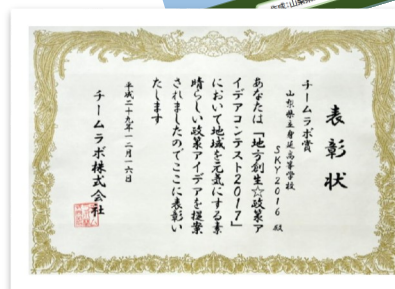 作成:山梨県
表彰状
チームラボ賞
山梨県立身延高等学校
SKY2016 殿
あなたは「地方創生☆政策ア
イデアコンテスト2017」
において地域を元気にする素
晴らしい政策アイデアを提案
されましたのでここに表彰い
たします
平成二十九年一二月一六日
チームラボ株式会社